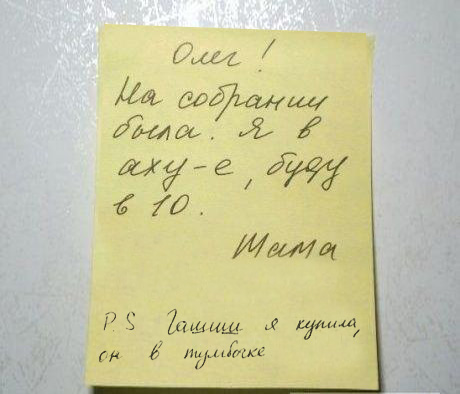 Олег!
На собрании
была. Я в
аху-е, буду
в 10.
Мама
P.S Гашиш я купила,
он в тумбочке